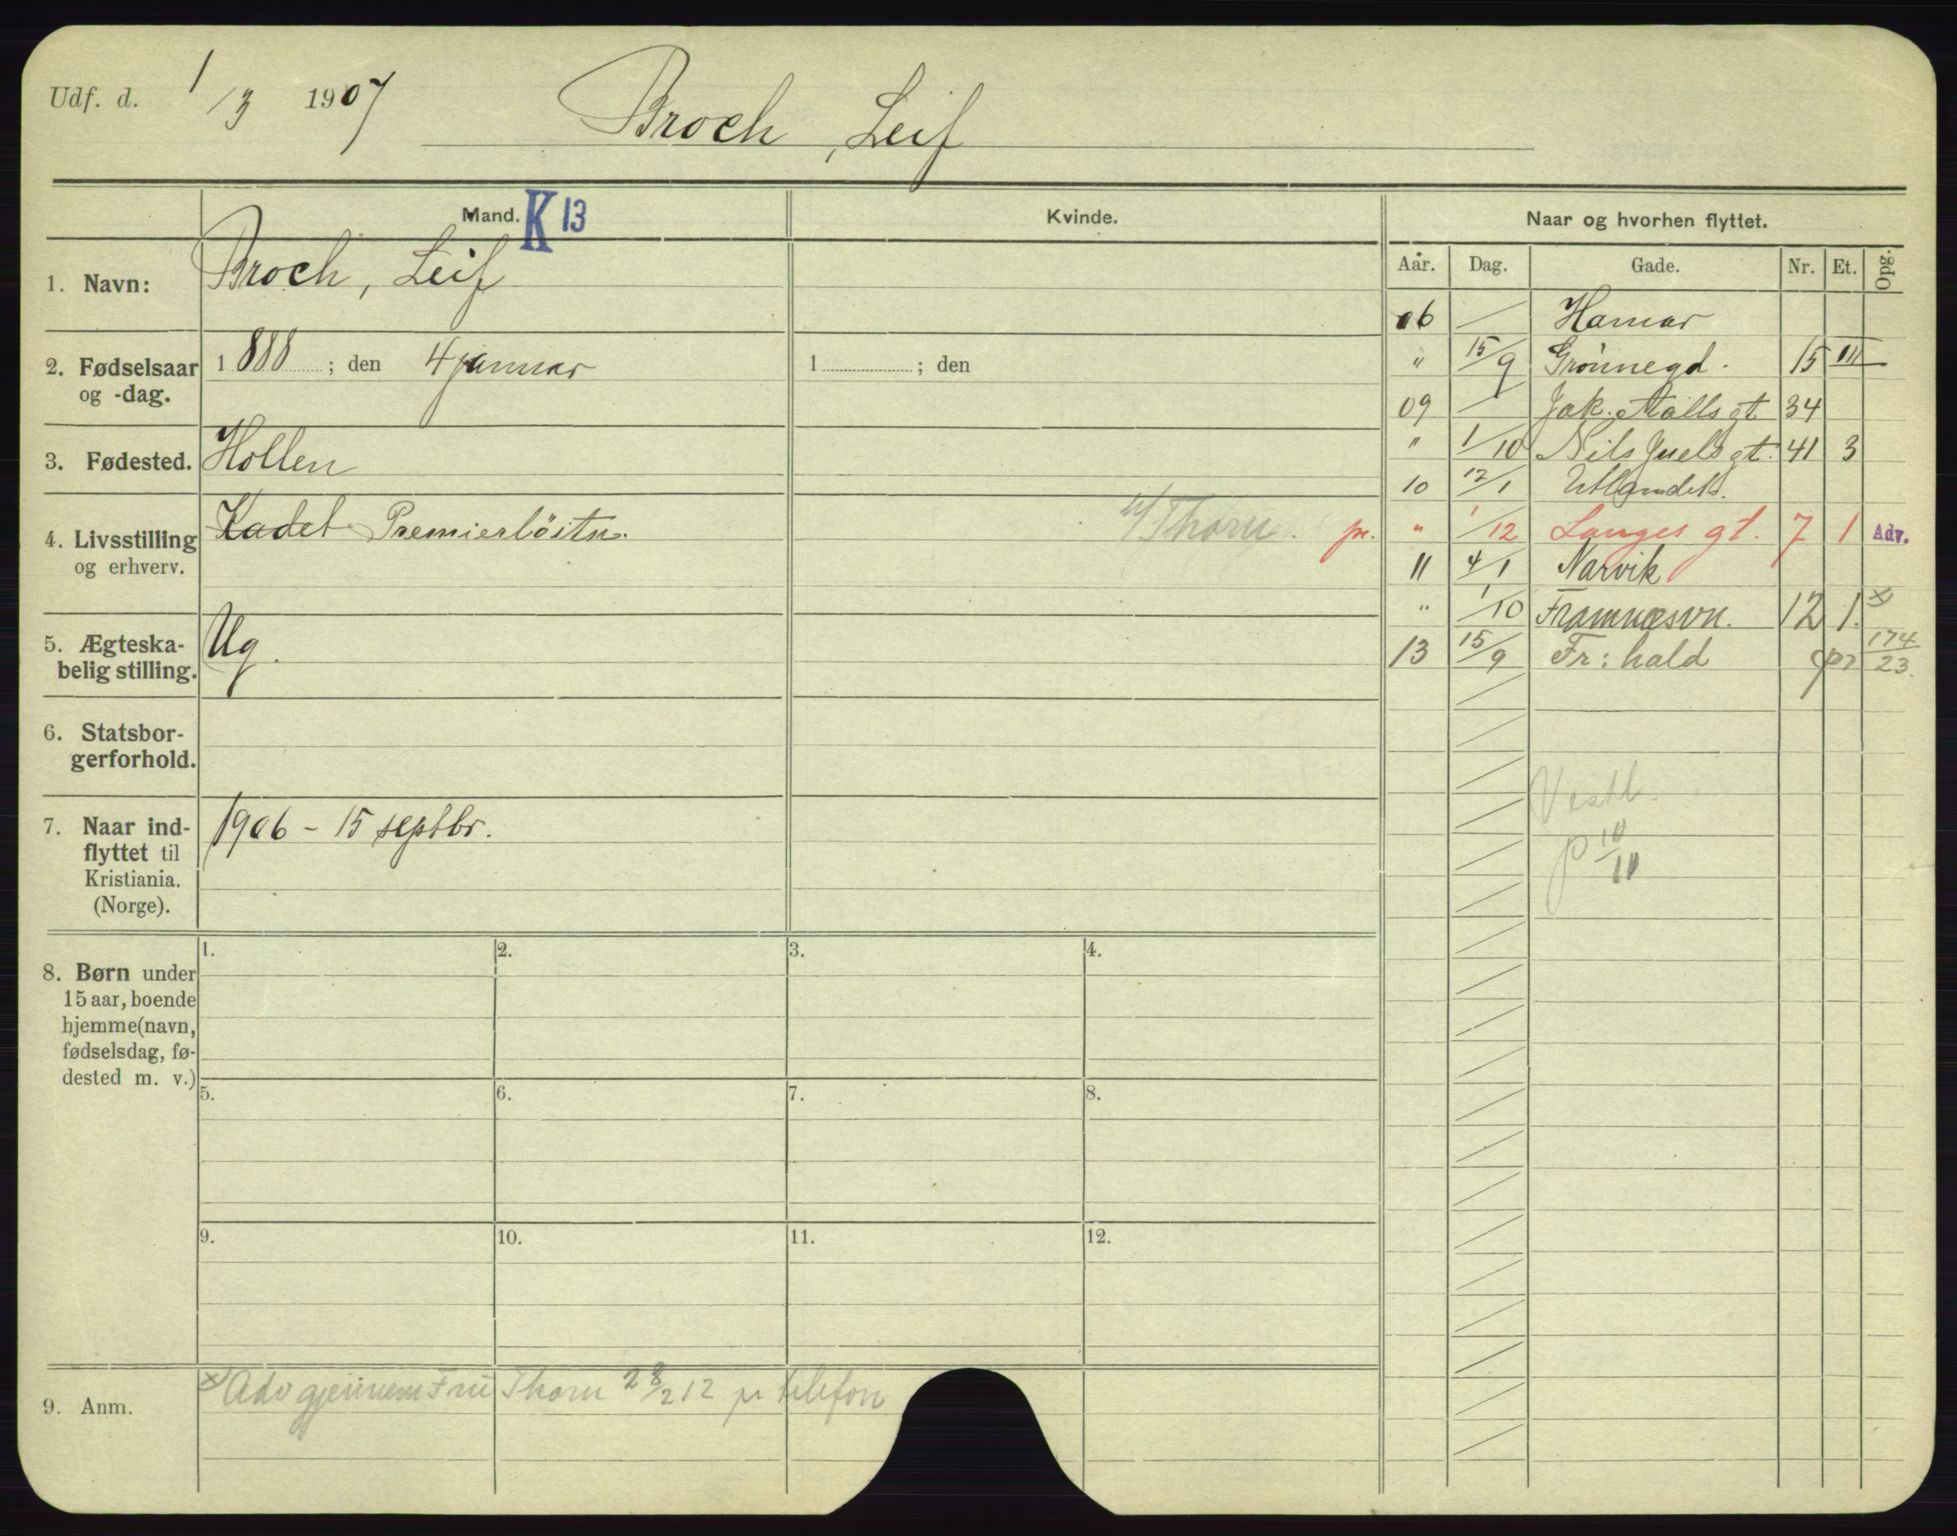 Udf. d. 1/3 1907 Broch, Leif
Mand. K 13 Kvinde. Naar og hvorhen flyttet.
Aar. Dag. Gade. Nr. Et. Opg.
1. Navn: Broch, Leif
2. Fødselsaar og -dag. 1888 ; den 4 januar 1 ; den
3. Fødested. Hollen
4. Livsstilling og erhverv. Kadet Premierløitn. Thorn. pr.
5. Ægteska-
belig stilling. Ug.
6. Statsbor-
gerforhold.
7. Naar ind-
flyttet til
Kristiania.
(Norge). 1906 - 15 septbr.
06 Hamar
" 15/9 Grønnegd. 15 III
09 Jak. Aalls gt 34
" 1/10 Nils Juels gt. 41 3
10 12/1 Utlandet.
" 1/12 Langes gt. 7 1 Adv.
11 4/1 Narvik
" 1/10 Framnæsvn. 12 1. x)
13 15/9 Fr: hald pr 174/23.
Vestl.
P 10/11
8. Børn under
15 aar, boende
hjemme (navn,
fødselsdag, fø-
dested m. v.)
1. 2. 3. 4.
5. 6. 7. 8.
9. 10. 11. 12.
9. Anm. x) Adv gjennem Fru Thorn 28/2 12 pr telefon